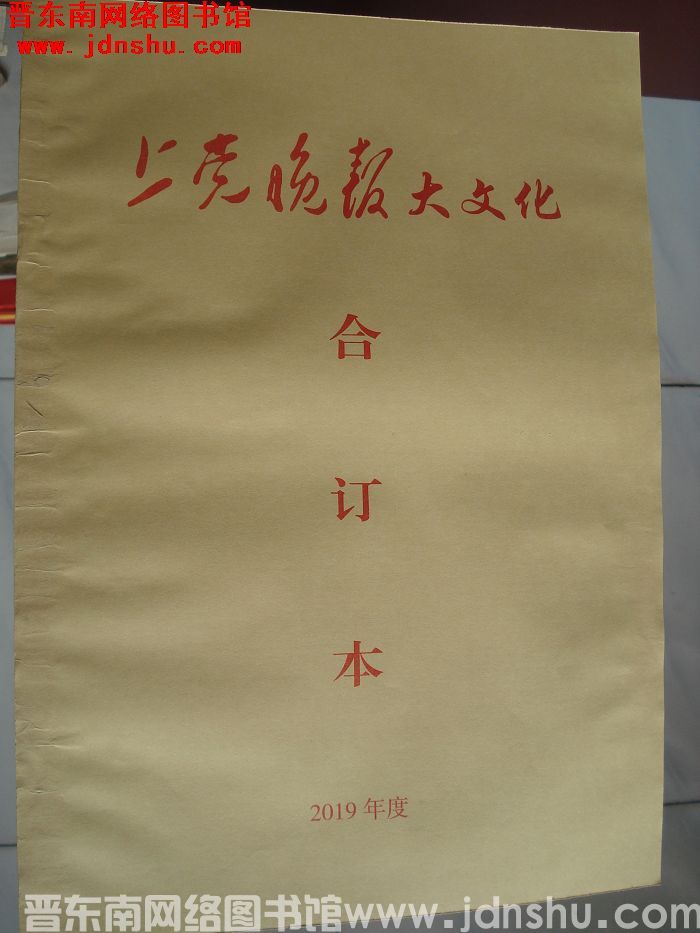 晋东南网络图书馆
www.jdnshu.com
上党晚报大文化
合
订
本
2019 年度
晋东南网络图书馆www.jdnshu.com